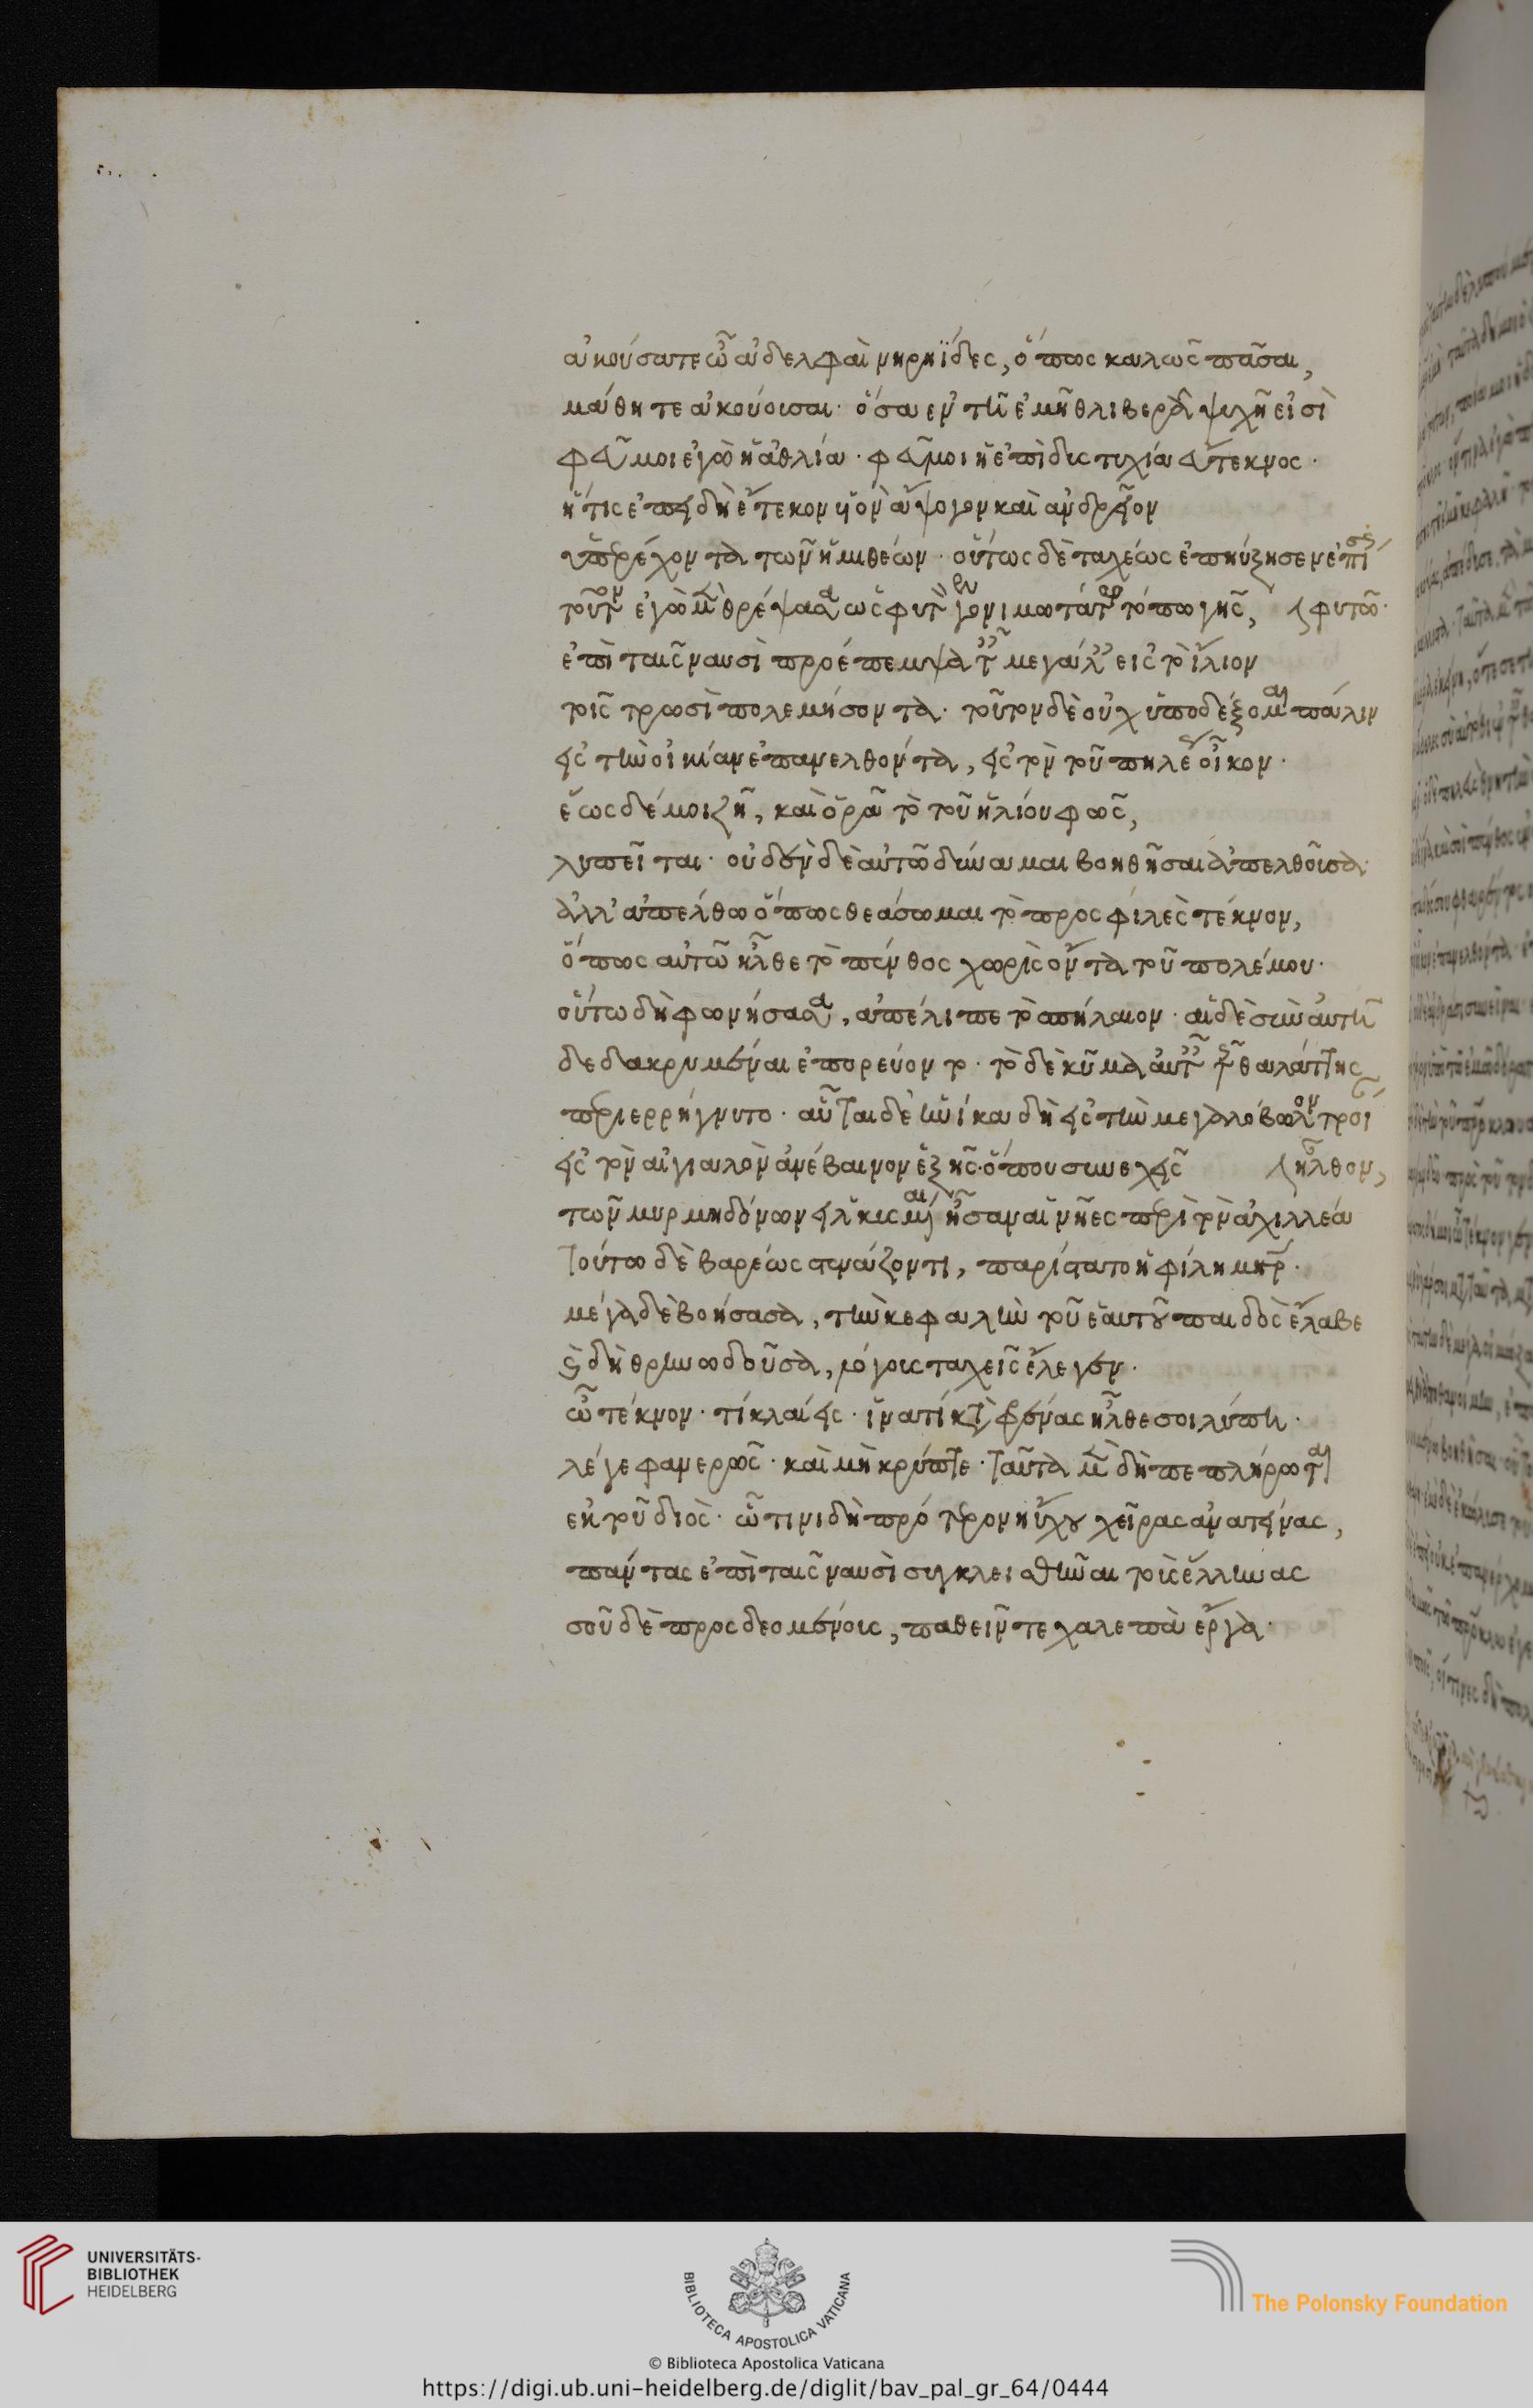 ἀκούσατε ὦ ἀδελφαὶ νηρηΐδες, ὅπως καλῶς πᾶσαι,
μάθητε ἀκούουσαι· ὅσα ἐν τῆ ἐμῆ θλιβερᾶ ψυχῆ εἰσὶ
φεῦ μοι ἐγὼ ἡ ἀθλία· φεῦ μοι ἡ ἐπὶ δυστυχία εὔτεκνος·
ἥτις ἐπειδὴ ἔτεκον υἱὸν ἄψογον καὶ ἀνδρεῖον
ὑπερέχοντα τῶν ἡμιθέων· οὕτως δὲ ταχέως ἐπηύξησεν ἐπίσης
τοῦτον ἐγὼ μὲν θρέψασα ὡς φυτὸν ἐν γονιμωτάτω τόπω γῆς, φυτῶ·
ἐπὶ ταῖς ναυσὶ προέπεμψα τῶν μεγάλων εἰς τὸ ἴλιον
τοῖς τρωσὶ πολεμήσοντα· τοῦτον δὲ οὐχ ὑποδέξομαι πάλιν
εἰς τὴν οἰκίαν ἐπανελθόντα, εἰς τὸν τοῦ πηλέως οἶκον·
ἕως δέ μοι ζῆ, καὶ ὁρᾶ τὸ τοῦ ἡλίου φῶς,
λυπεῖται· οὐδὲν δὲ αὐτῶ δύναμαι βοηθῆσαι ἀπελθοῦσα·
ἀλλ' ἀπελθω ὅπως θεάσωμαι τὸ προσφιλὲς τέκνον,
ὅπως αὐτῶ ἦλθε τὸ πένθος χωρὶς ὄντα τοῦ πολέμου·
οὕτω δὴ φωνήσασα, ἀπέλιπε τὸ σπήλαιον· αἱ δὲ σὺν αὐτῆ
δεδακρυμέναι ἐπορεύοντο· τὸ δὲ κῦμα αὐτῶν τῆς θαλάττης
περιερρήγνυτο· αὗται δὲ ἡνίκα δὴ εἰς τὴν μεγαλόβωλον τροίαν
εἰς τὸν αἰγιαλὸν ἀνέβαινον ἑξῆς· ὅπου συνεχεῖς ἦλθον,
τῶν μυρμηδόνων εἱλκυσμέναι ἦσαν αἱ νῆες περὶ τὸν ἀχιλλέα
τούτω δὲ βαρέως στενάζοντι, παρίστατο ἡ φίλη μήτηρ·
μέγα δὲ βοήσασα, τὴν κεφαλὴν τοῦ ἑαυτοῦ παιδὸς ἔλαβε
καὶ δὴ θρηνωδοῦσα, λόγους ταχεῖς ἔλεγεν·
ὦ τέκνον· τί κλαίεις· ἵνα τί κατὰ φρένας ἦλθε σοι λύπη·
λέγε φανερῶς· καὶ μὴ κρύπτε· ταῦτα μὲν δὴ πεπλήρωται
ἐκ τοῦ διὸς· ὧτινι δὴ πρότερον ηὔχου χεῖρας ἀνατείνας,
πάντας ἐπὶ ταῖς ναυσὶ συγκλεισθῆναι τοὺς ἕλληνας
σοῦ δὲ προσδεομένους, παθεῖν τε χαλεπὰ ἔργα·
UNIVERSITÄTS-
BIBLIOTHEK
HEIDELBERG
BIBLIOTECA APOSTOLICA VATICANA
The Polonsky Foundation
© Biblioteca Apostolica Vaticana
https://digi.ub.uni-heidelberg.de/diglit/bav_pal_gr_64/0444